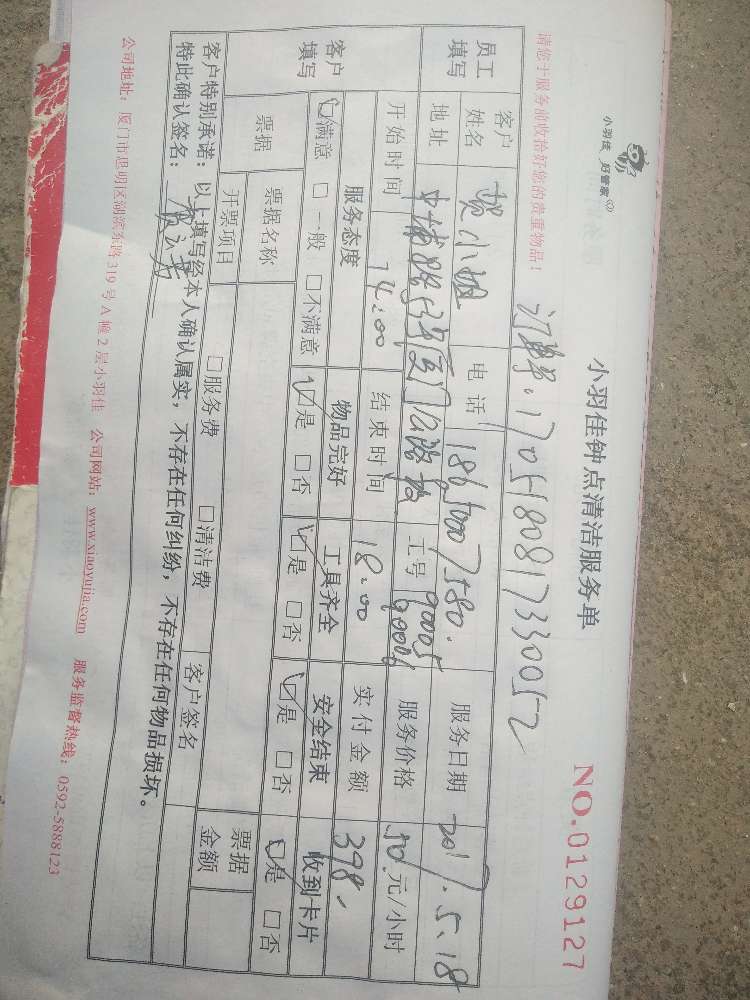 小羽佳 好管家
小羽佳钟点清洁服务单
NO.0129127
请您于服务前收拾好您的贵重物品！
1705180817330052
员工填写
客户姓名 贺小姐 电话 18650007580. 服务日期 2017.5.18
地址 工号 90005 90006 服务价格 50 元/小时
开始时间 14:00 结束时间 18:00 实付金额 398
客户填写
服务态度 物品完好 工具齐全 安全结束 收到卡片
☑满意 □一般 □不满意 ☑是 □否 ☑是 □否 ☑是 □否 ☑是 □否
票据 票据名称 □服务费 □清洁费 客户签名 票据金额
开票项目
客户特别承诺：以上填写经本人确认属实，不存在任何纠纷，不存在任何物品损坏。
特此确认签名：
公司地址：厦门市思明区湖滨东路319号A幢2层小羽佳 公司网站：www.xiaoyujia.com 服务监督热线：0592-5888123